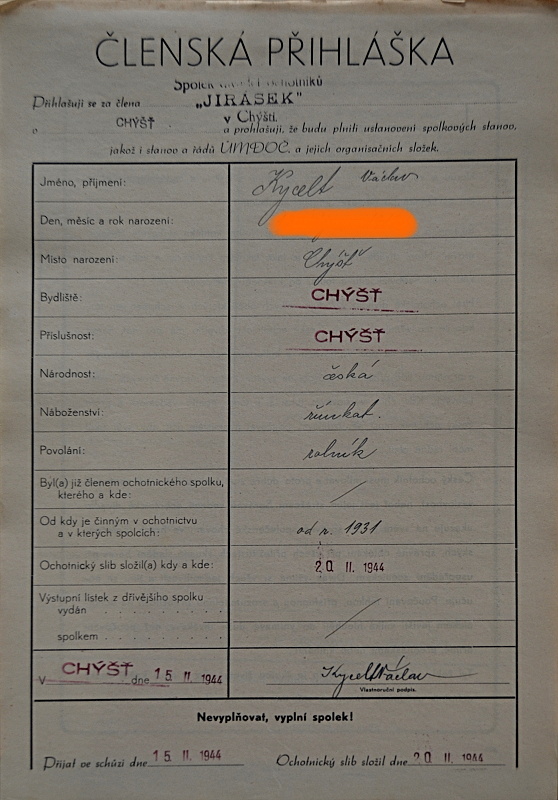 ČLENSKÁ PŘIHLÁŠKA
Spolek ochotníků
Přihlašuji se za člena „JIRÁSEK"
v Chýšti.
o CHÝŠŤ a prohlašuji, že budu plniti ustanovení spolkových stanov,
jakož i stanov a řádů ÚMDOČ. a jejich organisačních složek.
Jméno, příjmení: Kycelt Václav
Den, měsíc a rok narození:
Místo narození: Chýšť
Bydliště: CHÝŠŤ
Příslušnost: CHÝŠŤ
Národnost: česká
Náboženství: římkat.
Povolání: rolník
Byl(a) již členem ochotnického spolku,
kterého a kde: /
Od kdy je činným v ochotnictvu
a v kterých spolcích: od r. 1931
Ochotnický slib složil(a) kdy a kde: 20 II. 1944
Výstupní lístek z dřívějšího spolku
vydán . . . . . . . . . . /
spolkem . . . . . . . . .
V CHÝŠŤ dne 15 II. 1944 Kycelt Václav
Vlastnoruční podpis.
Nevyplňovat, vyplní spolek!
Přijat ve schůzi dne 15 II. 1944 Ochotnický slib složil dne 20 II. 1944